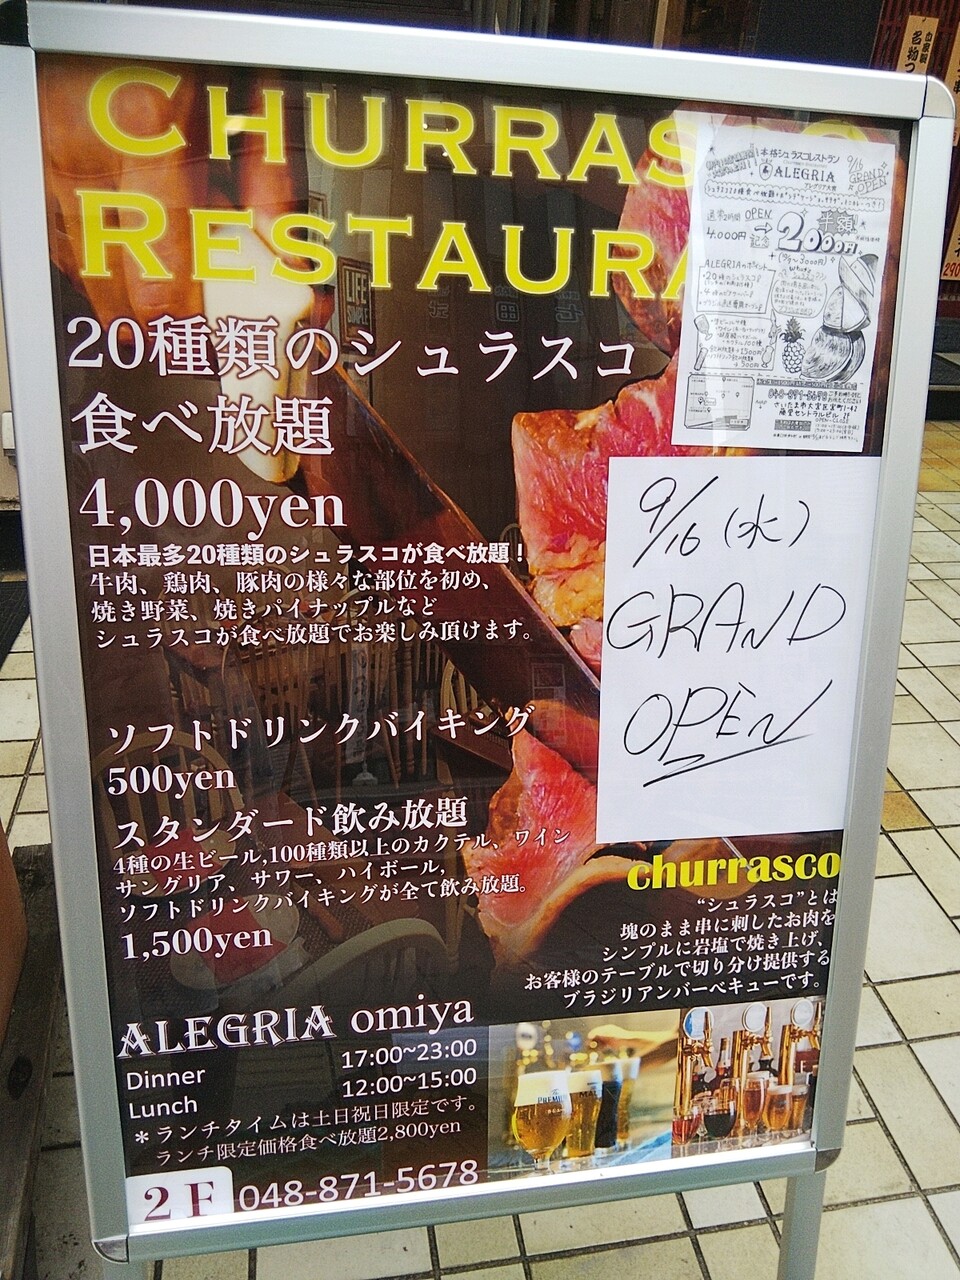 CHURRASCO
RESTAURA
20種類のシュラスコ
食べ放題
4,000yen
日本最多20種類のシュラスコが食べ放題！
牛肉、鶏肉、豚肉の様々な部位を初め、
焼き野菜、焼きパイナップルなど
シュラスコが食べ放題でお楽しみ頂けます。
ソフトドリンクバイキング
500yen
スタンダード飲み放題
4種の生ビール,100種類以上のカクテル、ワイン
サングリア、サワー、ハイボール,
ソフトドリンクバイキングが全て飲み放題。
1,500yen
ALEGRIA omiya
Dinner 17:00~23:00
Lunch 12:00~15:00
＊ランチタイムは土日祝日限定です。
ランチ限定価格食べ放題2,800yen
2F 048-871-5678
本格シュラスコレストラン
ALEGRIA
アレグリア大宮
9/16
GRAND
OPEN
通常2時間
4,000円
OPEN
記念
半額!
2000円
ALEGRIAのポイント
048-871-5678
さいたま市大宮区宮町1-42
9/16(水)
GRAND
OPEN
churrasco
“シュラスコ”とは
塊のまま串に刺したお肉を
シンプルに岩塩で焼き上げ、
お客様のテーブルで切り分け提供する
ブラジリアンバーベキューです。
LIFE
SIMPLE
名物